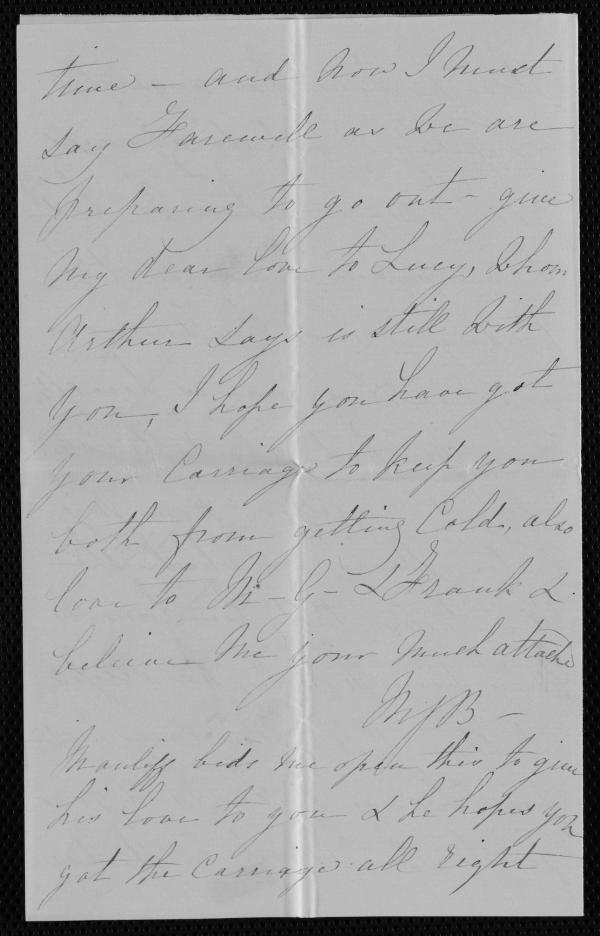 time – and now I must
say Farewell as we are
preparing to go out – give
my dear love to Lucy, whom
Arthur says is still with
you, I hope you have got
your Carriage to keep you
both from getting Cold, also
love to Mr – G – & Frank &
believe me your much attache
MJB –
bids me open this to give
his love to you & he hopes you
got the Carriage all right